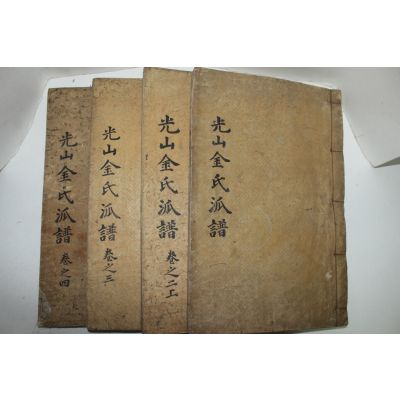 光山金氏派譜
光山金氏派譜 卷之二上
光山金氏派譜 卷之三
光山金氏派譜 卷之四